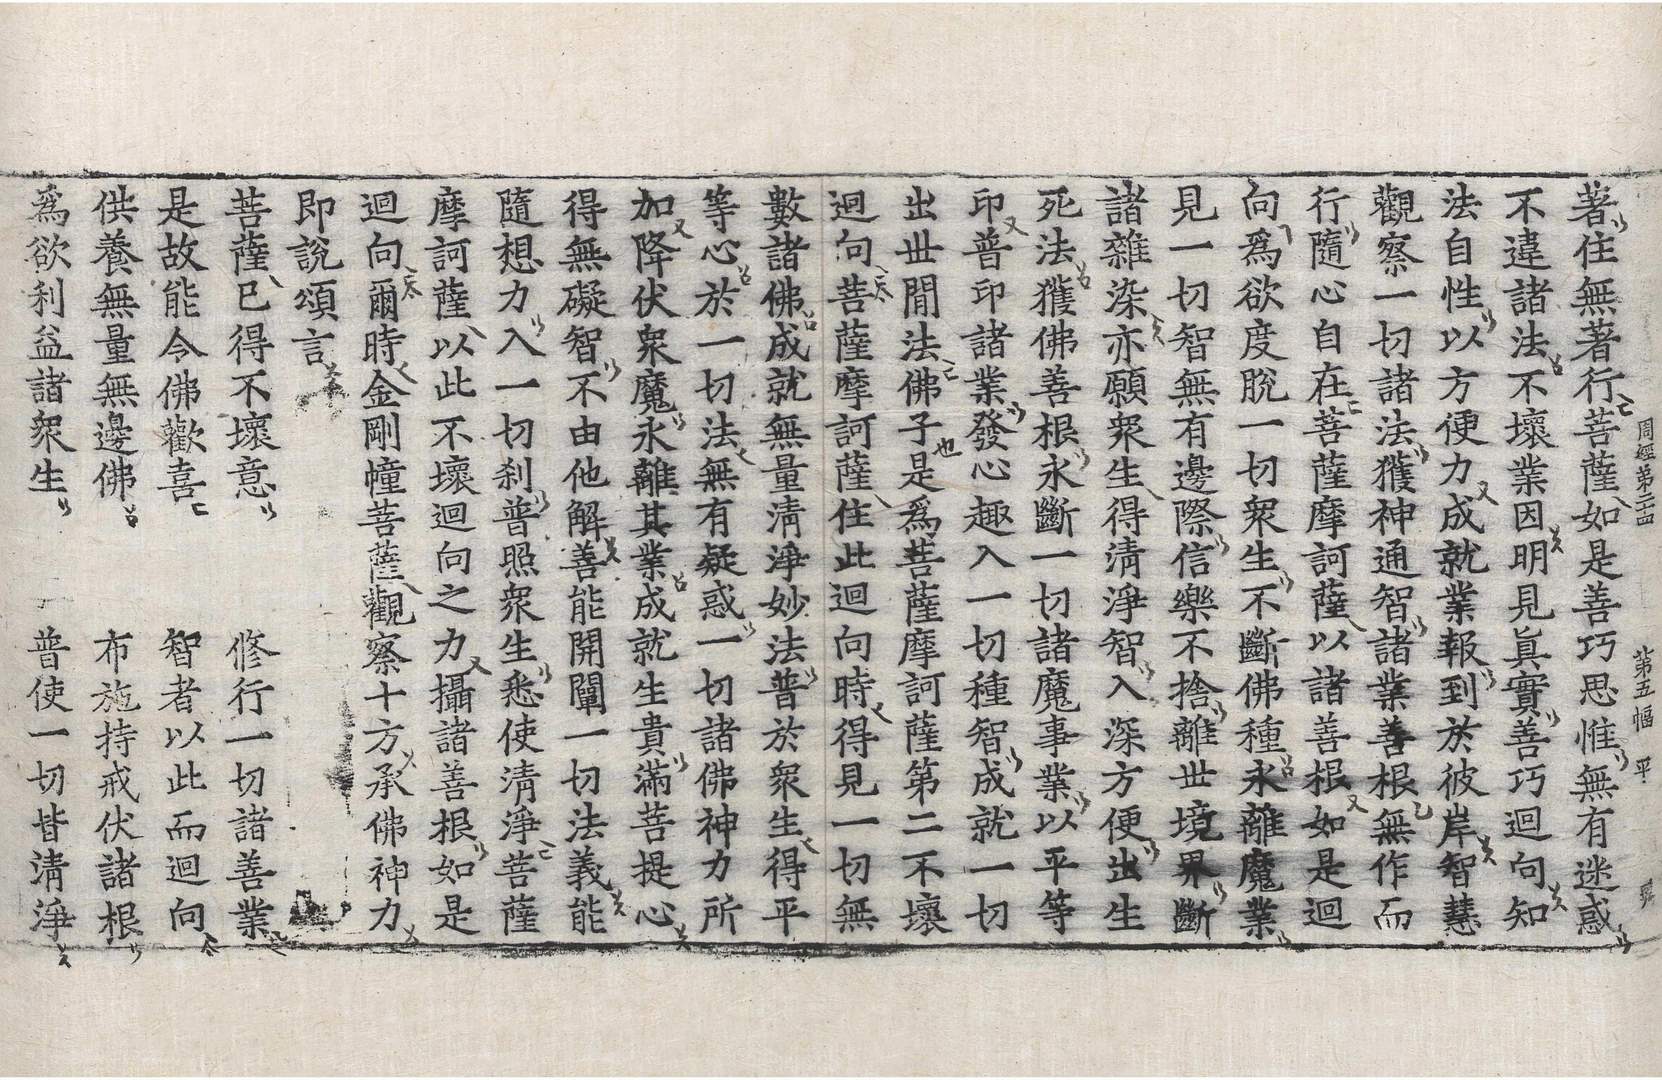 周經第二十四 第五幅 平
著住無著行菩薩如是善巧思惟無有迷惑
不違諸法不壞業因明見眞實善巧迴向知
法自性以方便力成就業報到於彼岸智慧
觀察一切諸法獲神通智諸業善根無作而
行隨心自在菩薩摩訶薩以諸善根如是迴
向爲欲度脫一切衆生不斷佛種永離魔業
見一切智無有邊際信樂不捨離世境界斷
諸雜染亦願衆生得淸淨智入深方便出生
死法獲佛善根永斷一切諸魔事業以平等
印普印諸業發心趣入一切種智成就一切
出世閒法佛子是爲菩薩摩訶薩第二不壞
迴向菩薩摩訶薩住此迴向時得見一切無
數諸佛成就無量淸淨妙法普於衆生得平
等心於一切法無有疑惑一切諸佛神力所
加降伏衆魔永離其業成就生貴滿菩提心
得無礙智不由他解善能開闡一切法義能
隨想力入一切刹普照衆生悉使淸淨菩薩
摩訶薩以此不壞迴向之力攝諸善根如是
迴向爾時金剛幢菩薩觀察十方承佛神力
即說頌言
菩薩已得不壞意 修行一切諸善業
是故能令佛歡喜 智者以此而迴向
供養無量無邊佛 布施持戒伏諸根
爲欲利益諸衆生 普使一切皆淸淨